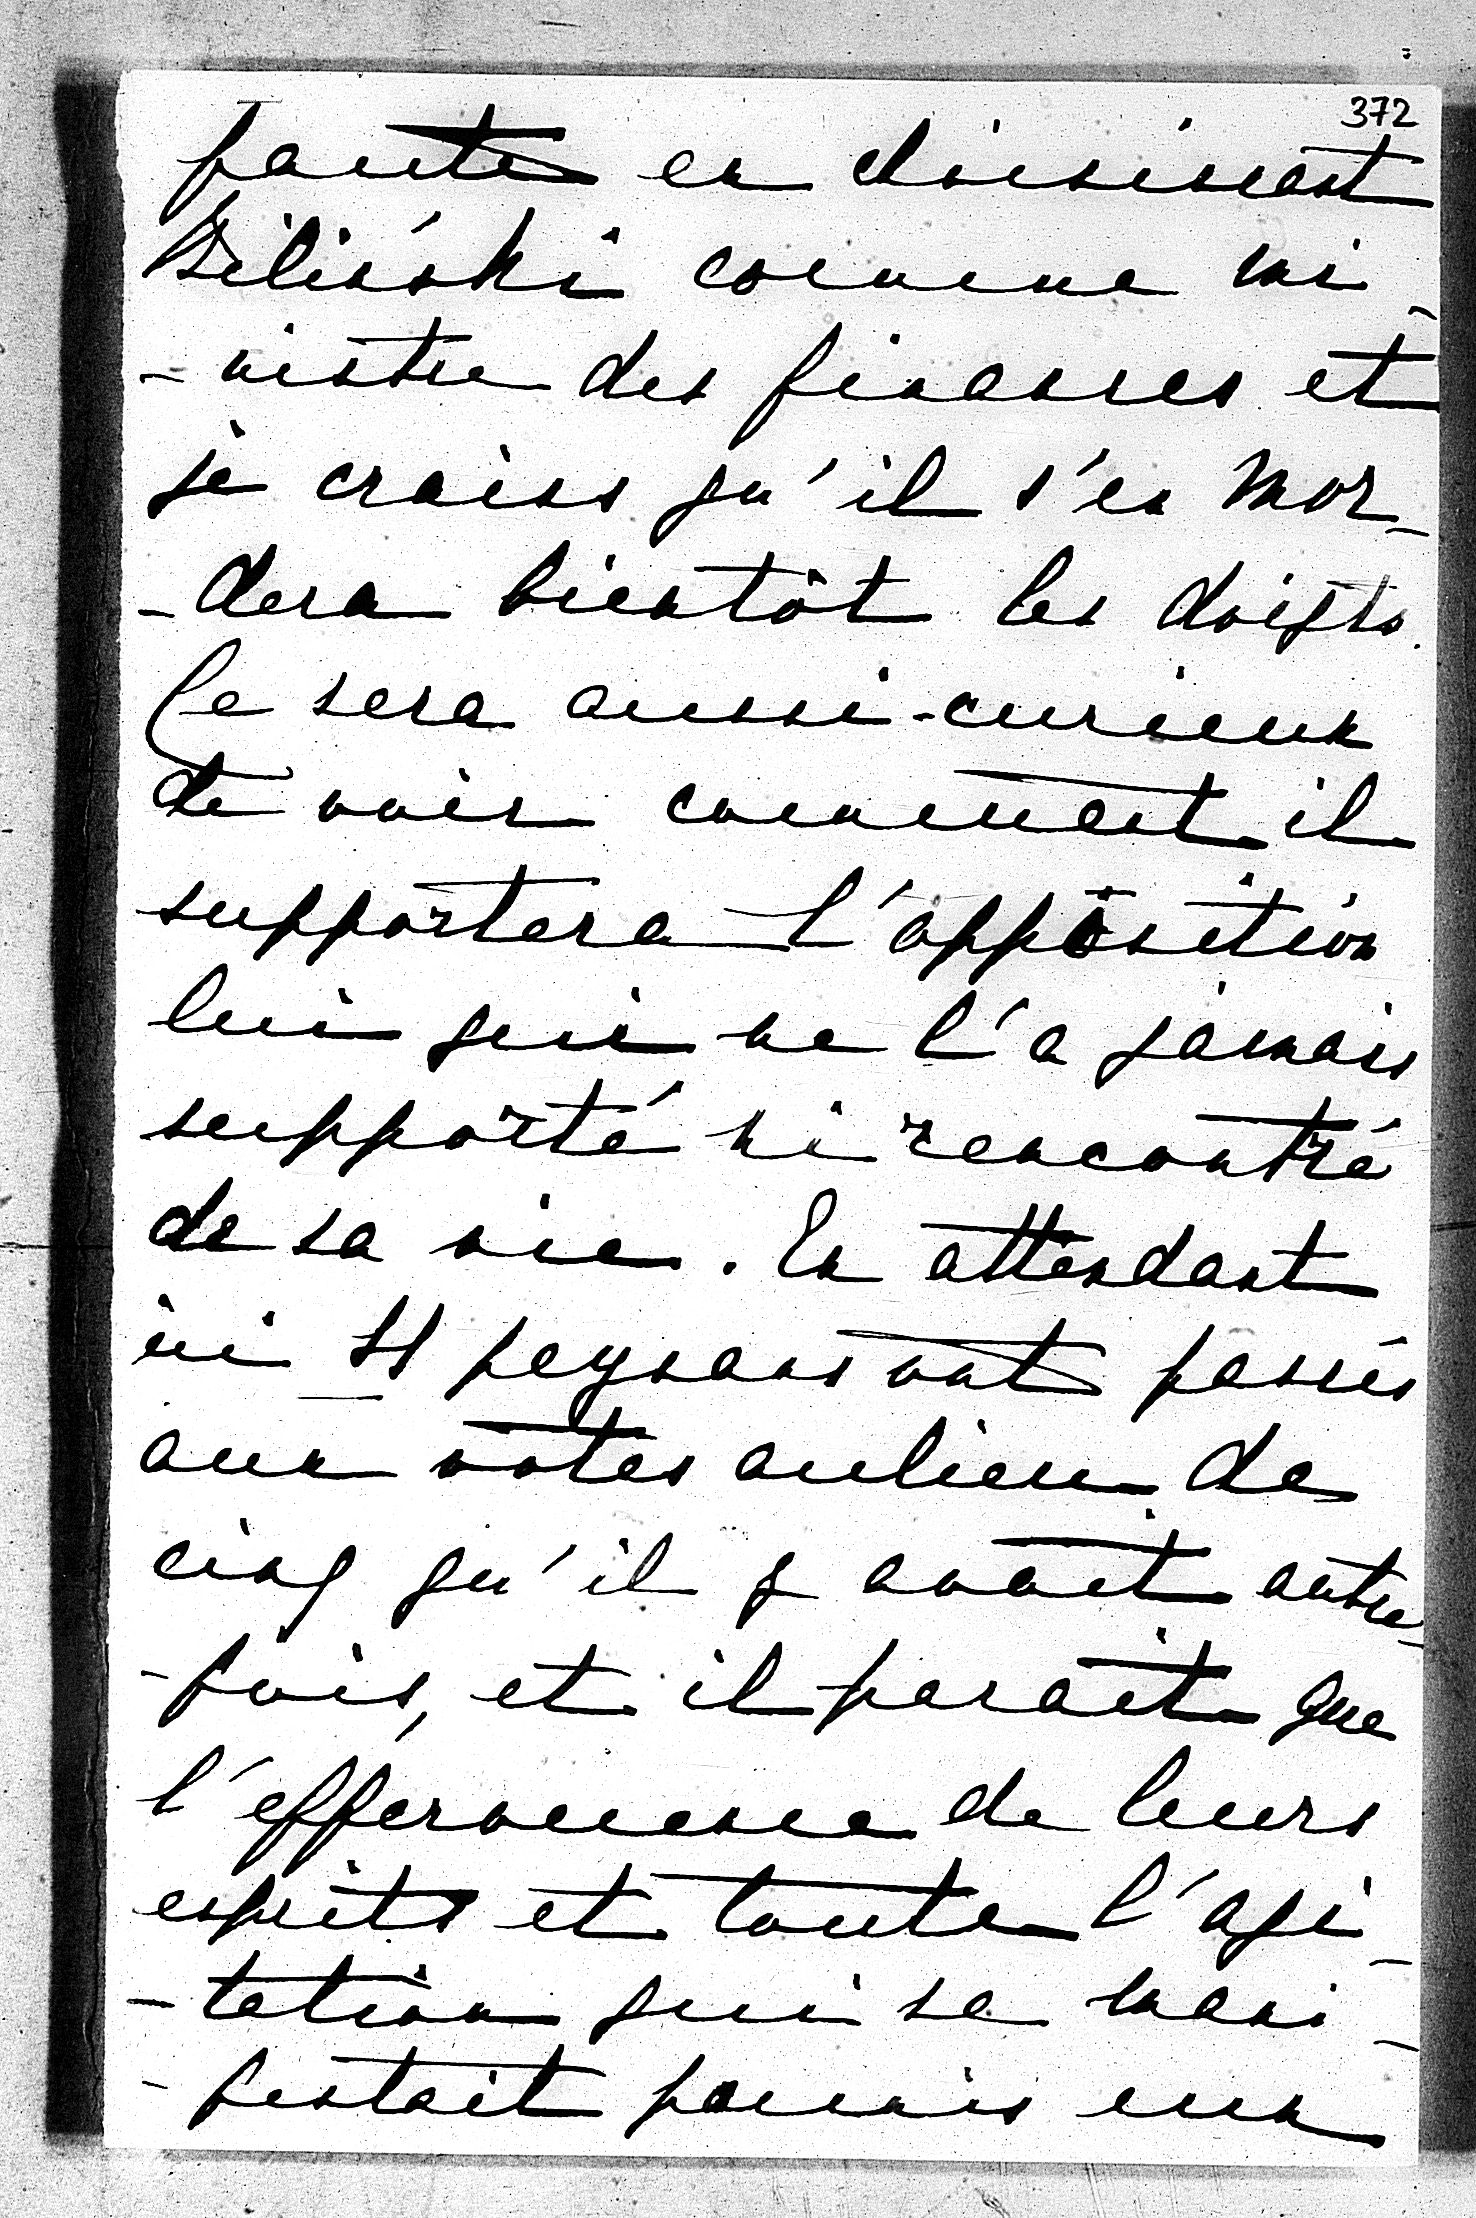 372
faute en choisissant
Biliński comme mi-
-nistre des finances et
je crains qu'il s'en mor-
-dera bientôt les doigts.
Ce sera aussi curieux
de voir comment il
supportera l'opposition
lui qui ne l'a jamais
supporté ni rencontré
de sa vie. En attendant
ici peysans ont passés
aux votes aulieu de
cinq qu'il y avait autre-
-fois, et il parait que
l'effervescence de leurs
esprits et toute l'agi-
-tation qui se mani-
-festait parmis eux